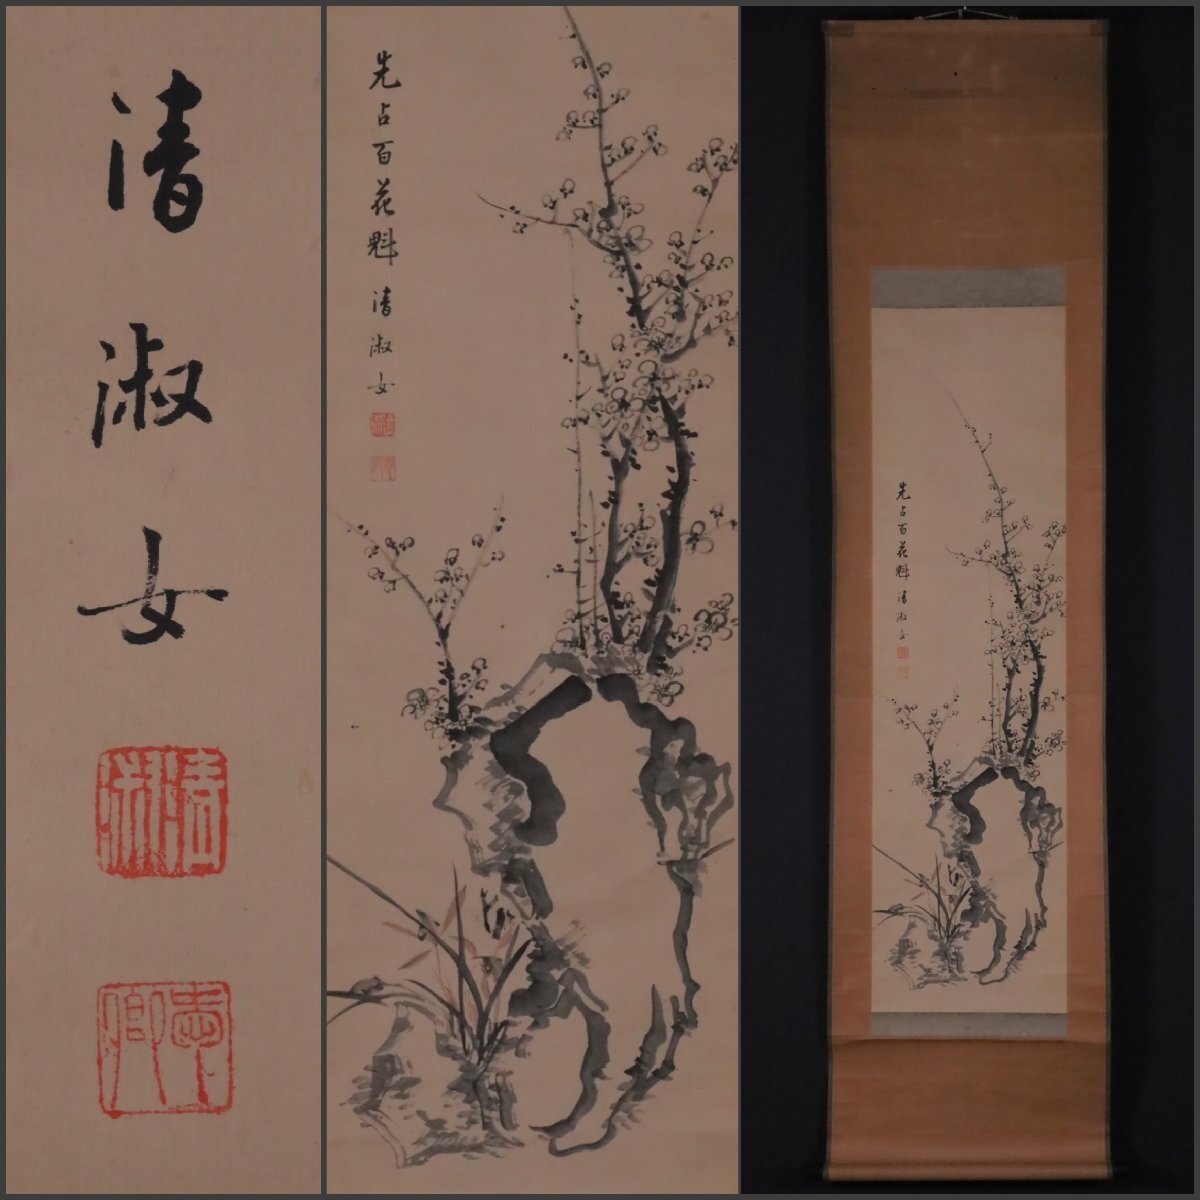 清淑女
先占百花魁 清淑女
先占百花魁 清淑女